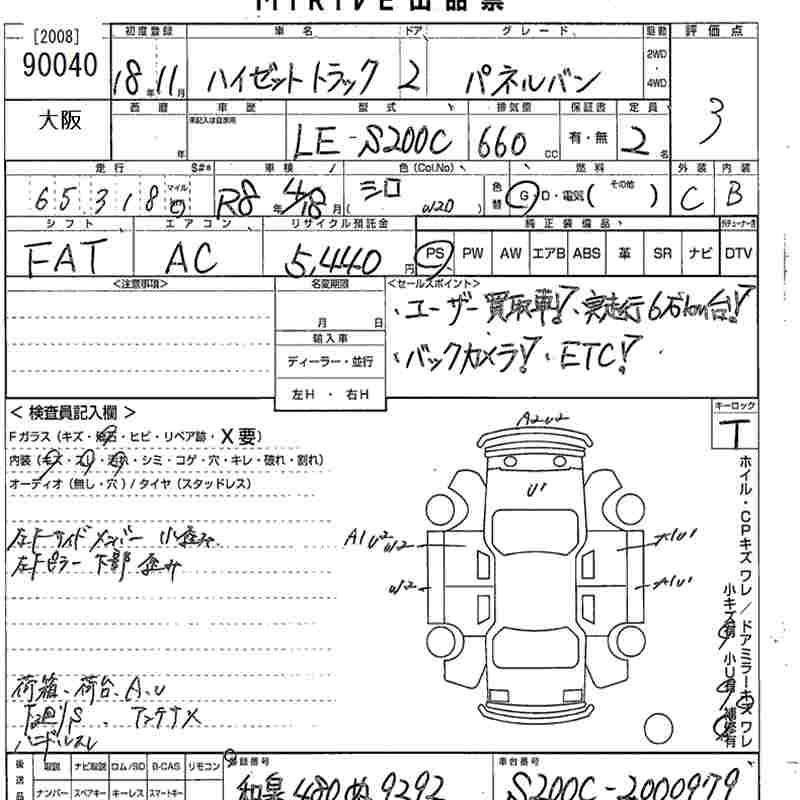 MIRIVE出品票
[2008] 初度登録 車名 ドア グレード 駆動 評価点
90040 18年11月 ハイゼットトラック 2 パネルバン 2WD・4WD 3
大阪 西暦 車歴 型式 排気量 保証書 定員
年 未記入は自家用 LE-S200C 660cc 有・無 2名
走行 S#* 車検 色(Col.No) 燃料 外装 内装
65,318 マイル R8年4/18月 シロ (W20) 色替 G・D・電気(その他) C B
シフト エアコン リサイクル預託金 純正装備品
FAT AC 5,440円 PS PW AW エアB ABS 革 SR ナビ DTV
<注意事項> 名変期限 <セールスポイント>
月 日
・ユーザー買取車!・実走行6万km台!
輸入車
ディーラー・並行
・バックカメラ!・ETC!
左H・右H
<検査員記入欄> キーロック
Fガラス(キズ・飛石・ヒビ・リペア跡・X要) T
内装(キズ・スレ・汚れ・シミ・コゲ・穴・キレ・破れ・割れ)
オーディオ(無し・穴)/タイヤ(スタッドレス)
A2U2
U1
左Fサイドメンバー 小歪み
左Fピラー下部 歪み
A1U2 W2
A1U1
W2
A1U1
ホイル・CPキズ ワレ/ドアミラーキズ ワレ
小キズ有 小U有 補修有
荷箱、荷台、A、U
下廻/S、アンテナX
ハンドルスレ
後送品 取説 ナビ取説 ロム/SD B-CAS リモコン 登録番号 車台番号
ナンバー スペアキー キーレス スマートキー 和泉 480 ぬ 9292 S200C-2000979